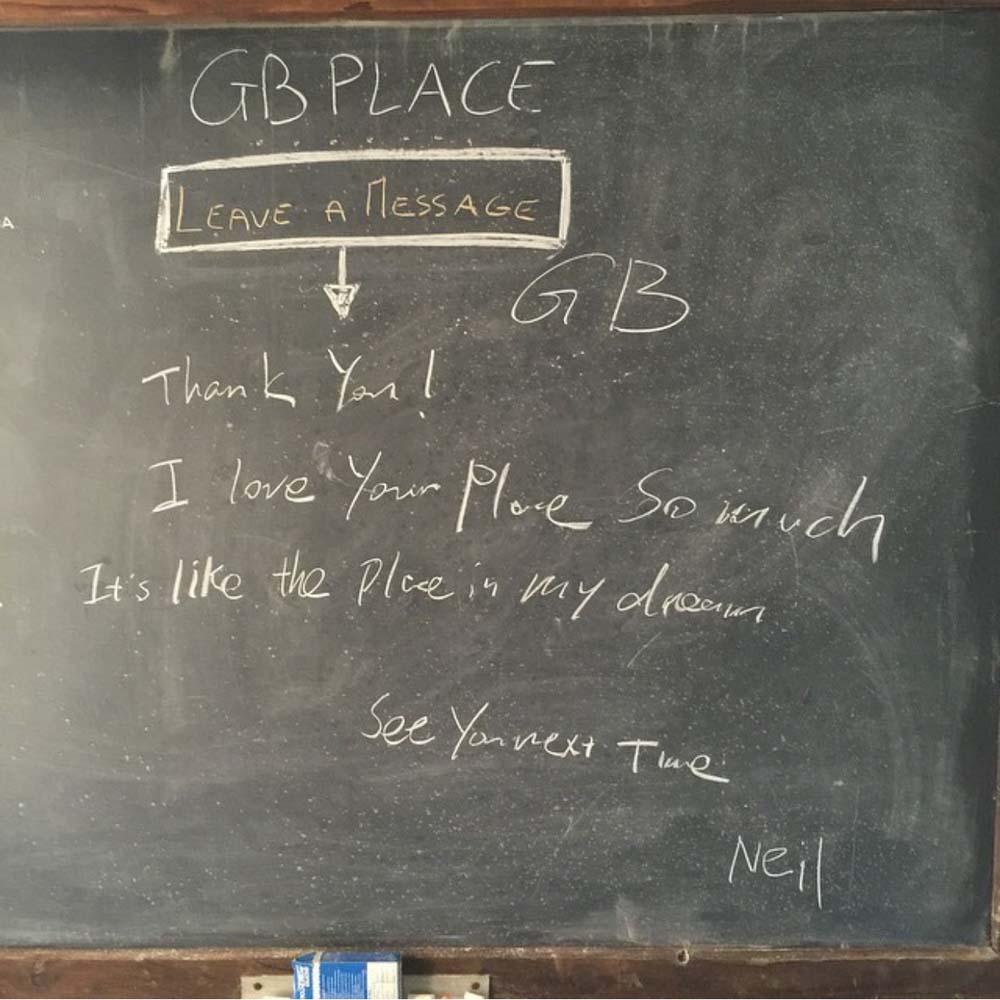 GB PLACE
LEAVE A MESSAGE
GB
Thank You!
I love Your Place So much
It's like the Place in my dream
See You next Time
Neil
A